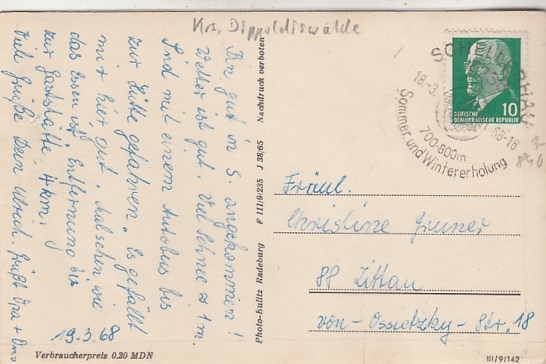 Krs. Dippoldiswalde
Bin gut in S. angekommen!
Wetter ist gut. Viel Schnee ca 1m.
Sind mit einem Autobus bis
zur Hütte gefahren. Es gefällt
mir hier gut. Aussehen wie
das Essen ist. Entfernung bis
zur Gaststätte 4 km.
Viele Grüße Dein Ulrich. Grüßt Opa + Oma
19.3.68
Verbraucherpreis 0,20 MDN
Photo-Kulitz Radeburg F III/9/235 J 38/65 Nachdruck verboten
18.-3.
68-18
700-800m
Sommer und Wintererholung
10
DEUTSCHE
DEMOKRATISCHE REPUBLIK
Fräul.
Christine Gruner
88 Zittau
von-Ossietzky-Str. 18
III/9/142